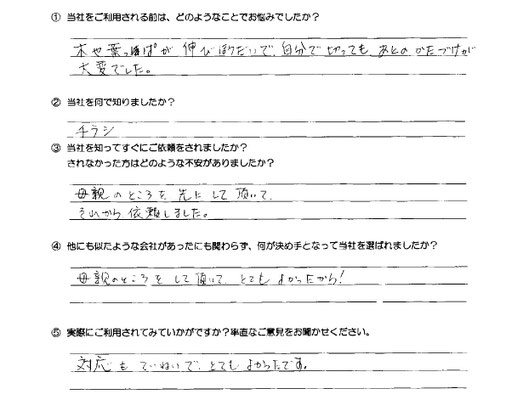 ① 当社をご利用される前は、どのようなことでお悩みでしたか？
木や葉っぱが伸びほうだいで、自分で切っても あとの かたづけが
大変でした。
② 当社を何で知りましたか？
チラシ
③ 当社を知ってすぐにご依頼をされましたか？
されなかった方はどのような不安がありましたか？
母親のところを先にして頂いて、
それから依頼しました。
④ 他にも似たような会社があったにも関わらず、何が決め手となって当社を選ばれましたか？
母親のところをして頂いて とても よかったから!
⑤ 実際にご利用されてみていかがですか？率直なご意見をお聞かせください。
対応も ていねいで、とても よかったです。